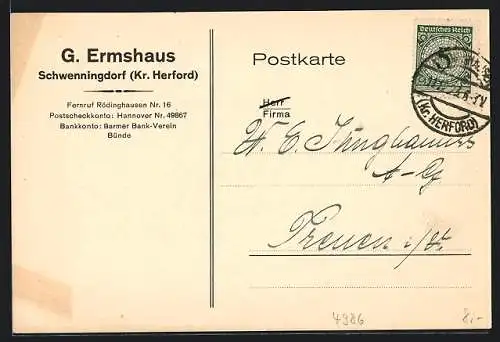 G. Ermshaus
Schwenningdorf (Kr. Herford)
Fernruf Rödinghausen Nr. 16
Postscheckkonto: Hannover Nr. 49867
Bankkonto: Barmer Bank-Verein
Bünde
Postkarte
Herr
Firma
W. E.
A-G.
Treuen i/
Deutsches Reich
(Kr. HERFORD)
4986
8,-